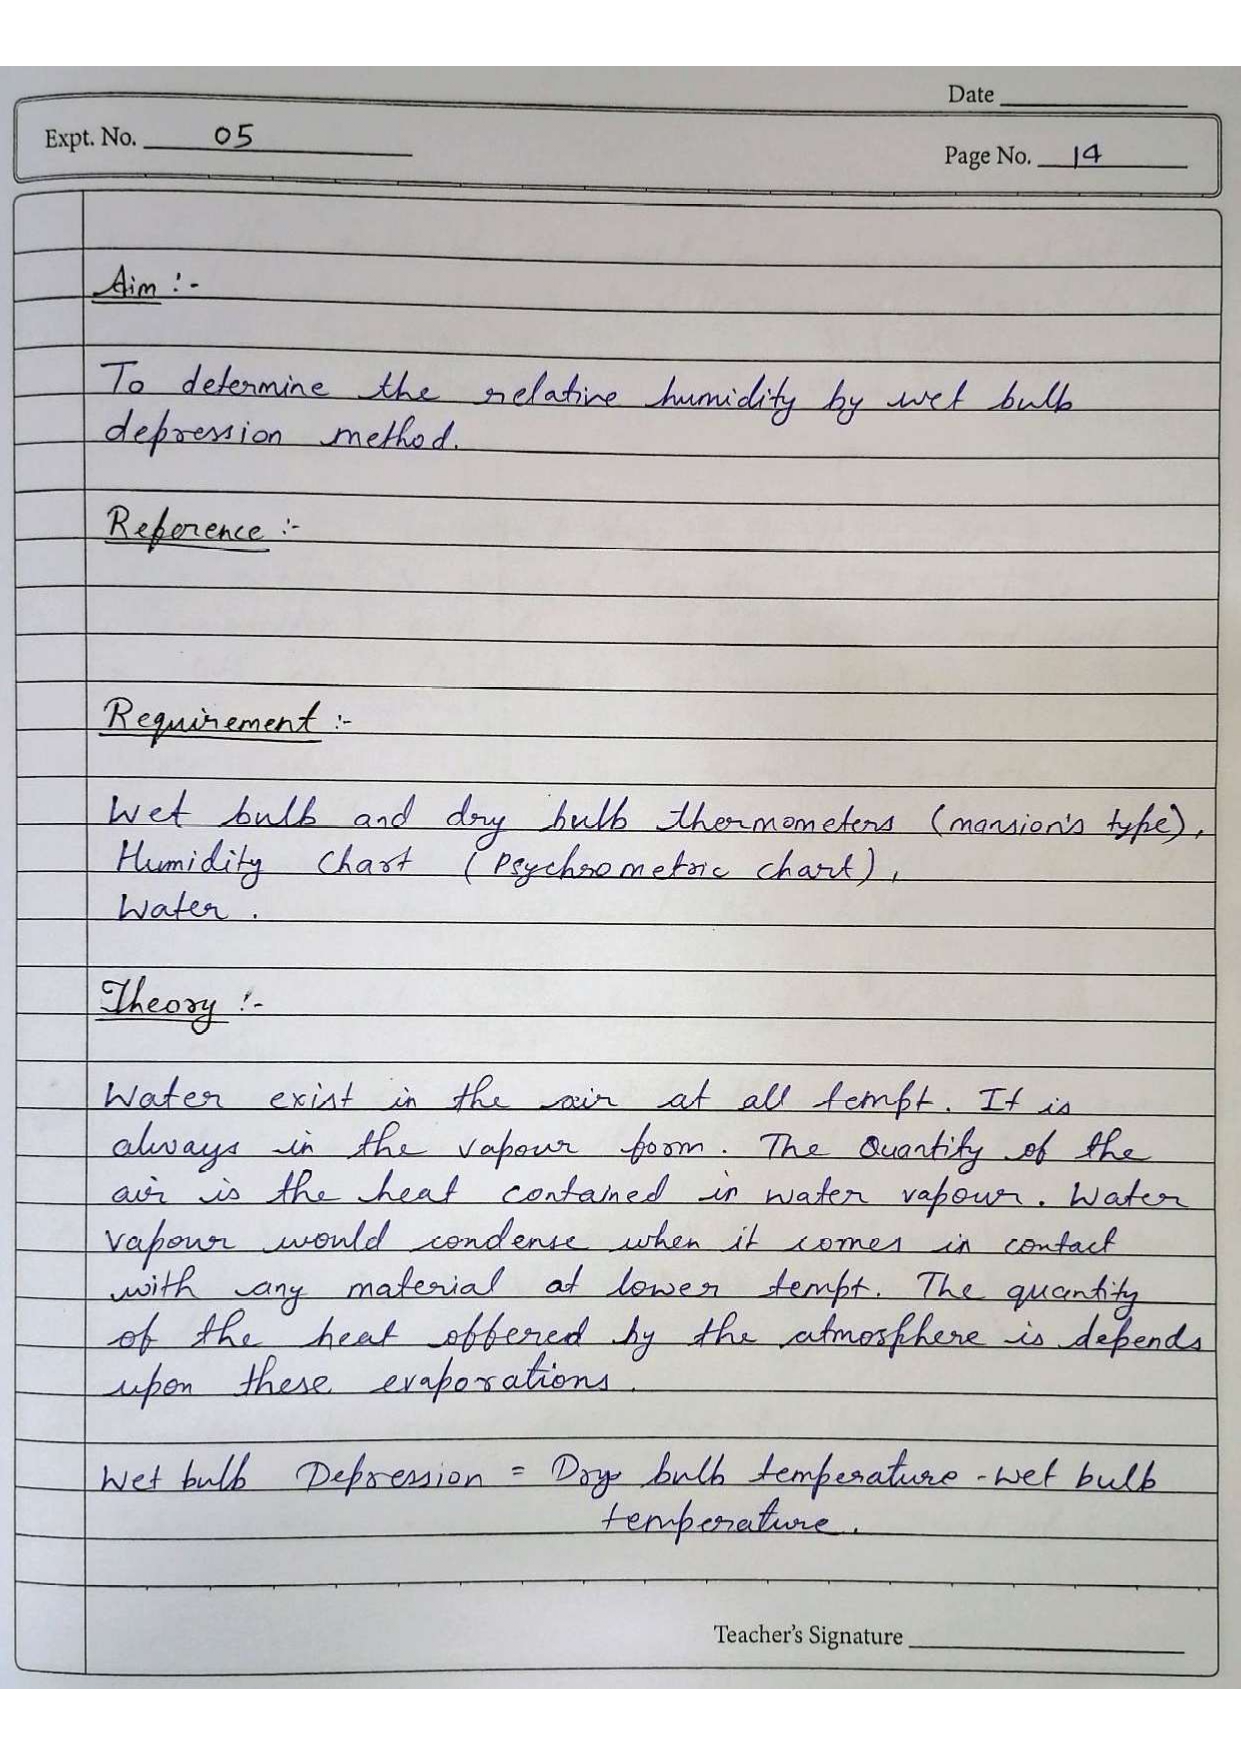 Date
Expt. No. 05
Page No. 14
Aim :-
To determine the relative humidity by wet bulb
depression method.
Reference :-
Requirement :-
Wet bulb and dry bulb thermometers (mansion's type),
Humidity Chart (Psychrometric chart),
Water.
Theory :-
Water exist in the air at all tempt. It is
always in the vapour form. The Quantity of the
air is the heat contained in water vapour. Water
vapour would condense when it comes in contact
with any material at lower tempt. The quantity
of the heat offered by the atmosphere is depends
upon these evaporations.
Wet bulb Depression = Dry bulb temperature - wet bulb
temperature.
Teacher's Signature